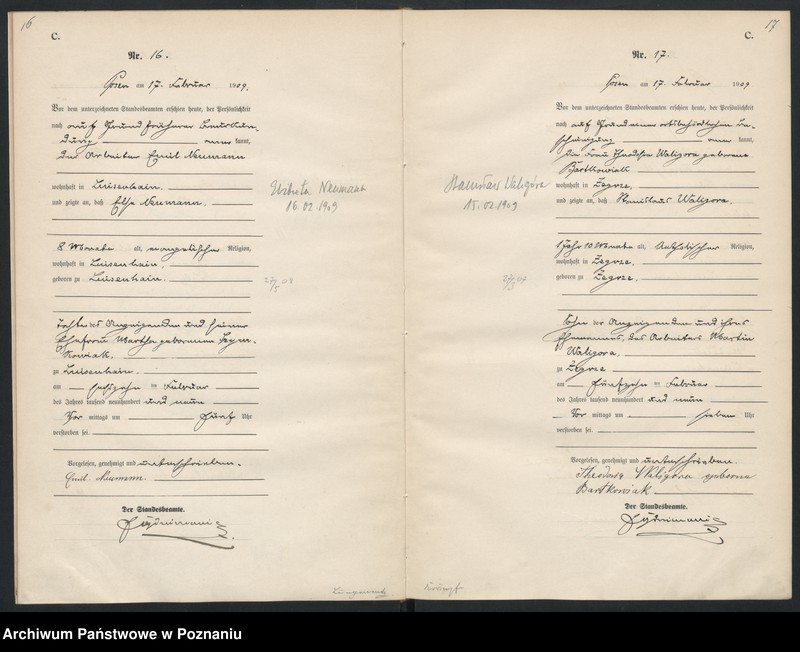 16
C.
Nr. 16.
Posen am 17. Februar 1909.
Vor dem unterzeichneten Standesbeamten erschien heute, der Persönlichkeit
nach auf Grund früherer Beurkun-
dung kannt,
der Arbeiter Emil Neumann
wohnhaft in Luisenhain.
und zeigte an, daß Else Neumann.
8 Monate alt, evangelischer Religion,
wohnhaft in Luisenhain.
geboren zu Luisenhain.
Tochter des Anzeigenden und seiner
Ehefrau Martha geborenen Szym-
kowiak.
zu Luisenhain.
am sechszehn ten Februar
des Jahres tausend neunhundert und neun
Vor mittags um fünf Uhr
verstorben sei.
Vorgelesen, genehmigt und unterschrieben.
Emil Neumann.
Der Standesbeamte.
Elżbieta Neumann
16.02.1909
27/5 08
17
C.
Nr. 17.
Posen am 17. Februar 1909
Vor dem unterzeichneten Standesbeamten erschien heute, der Persönlichkeit
nach auf Grund einer ortsbehördlichen Be-
scheinigung kannt,
die Frau Theodosia Waligora geborene
Bartkowiak
wohnhaft in Zegrze.
und zeigte an, daß Stanislaus Waligora.
1 Jahr 10 Monate alt, katholischer Religion,
wohnhaft in Zegrze.
geboren zu Zegrze.
Sohn der Anzeigenden und ihres
Ehemannes, des Arbeiters Martin
Waligora.
zu Zegrze
am fünfzehn ten Februar
des Jahres tausend neunhundert und neun
Vor mittags um sieben Uhr
verstorben sei.
Vorgelesen, genehmigt und unterschrieben.
Theodosia Waligora geborene
Bartkowiak
Der Standesbeamte.
Stanisław Waligóra
15.02.1909
Archiwum Państwowe w Poznaniu